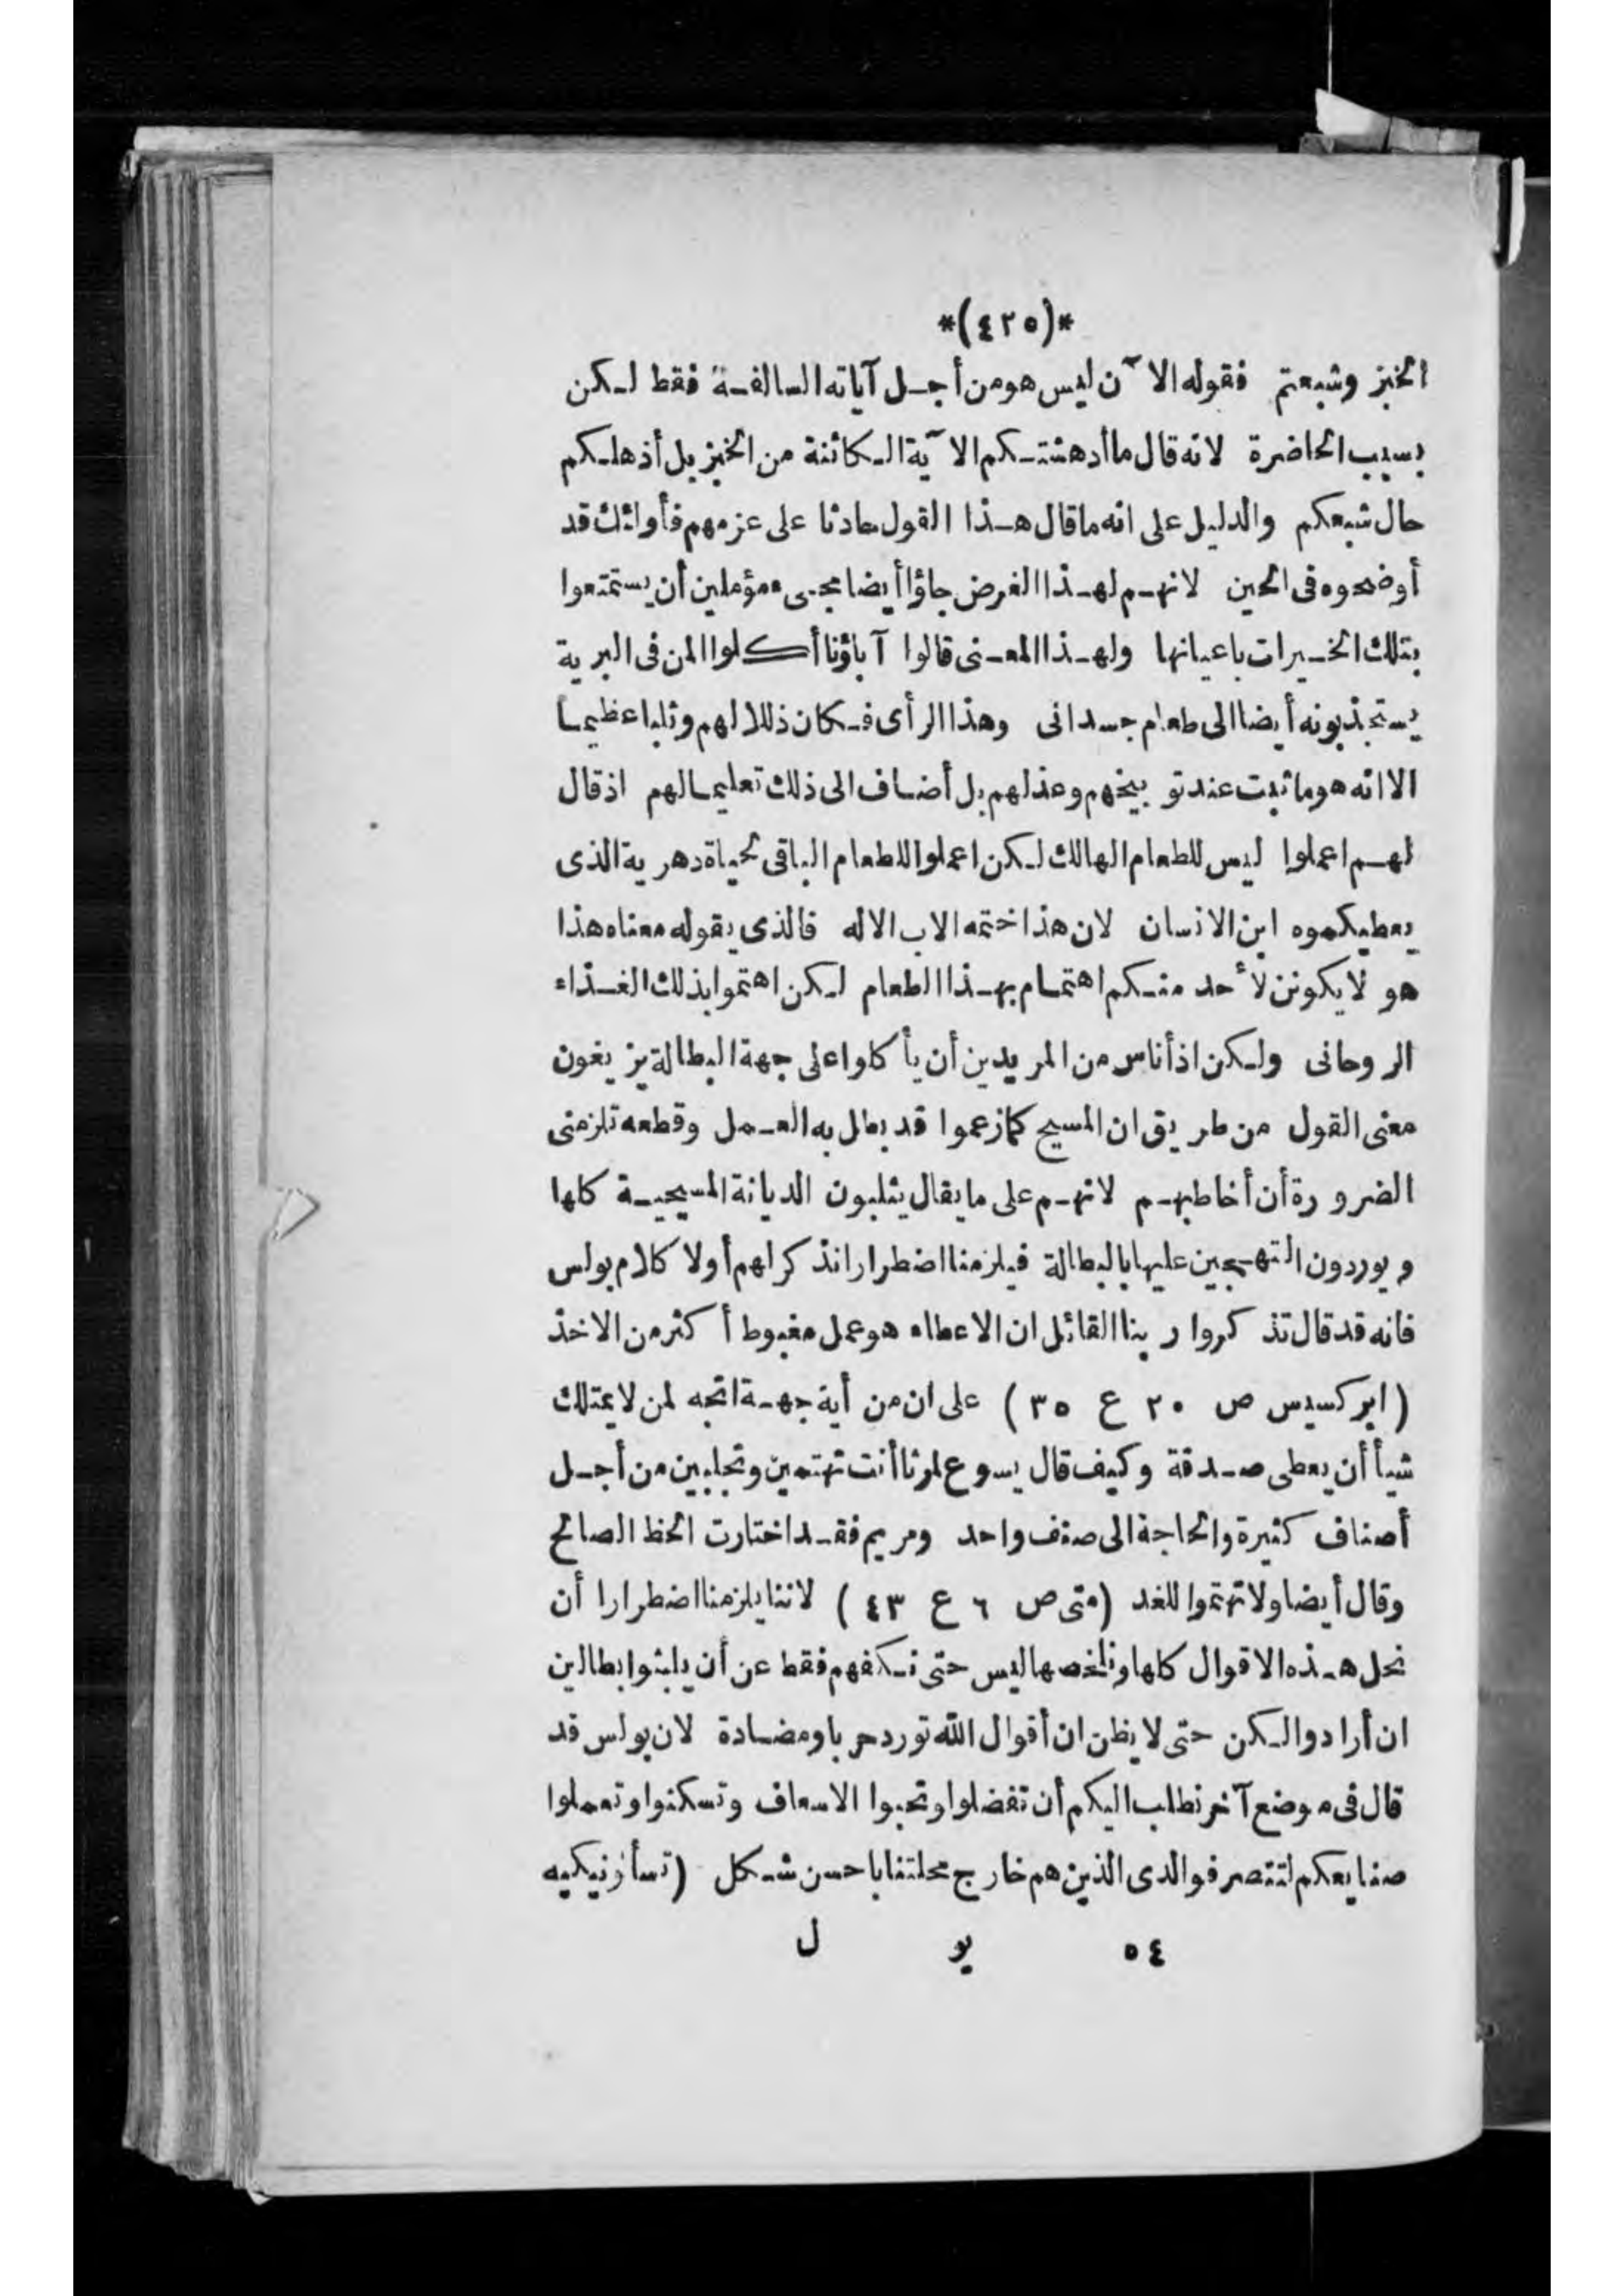 *(٤٢٥)*
الخبز وشبعتم فقوله الآن ليس هو من أجل آياته السالفة فقط لكن
بسبب الحاضرة لانه قال ما أدهشتكم الآية الكائنة من الخبز بل أذهلكم
حال شبعكم والدليل على انه ما قال هذا القول حادثا على عزمهم فأولئك قد
أوضحوه فى الحين لانهم لهذا الغرض جاؤا أيضا مجىء مؤملين أن يستمتعوا
بتلك الخيرات باعيانها ولهذا المعنى قالوا آباؤنا أكلوا المن فى البرية
يستجذبونه أيضا الى طعام جسدانى وهذا الرأى فكان ذللا لهم وثلبا عظيما
الا انه هو ما ثبت عند توبيخهم وعذلهم بل أضاف الى ذلك تعليما لهم اذ قال
لهم اعملوا ليس للطعام الهالك لكن اعملوا للطعام الباقى لحياة دهرية الذى
يعطيكموه ابن الانسان لان هذا ختمه الاب الاله فالذى يقوله معناه هذا
هو لا يكونن لأحد منكم اهتمام بهذا الطعام لكن اهتموا بذلك الغذاء
الروحانى ولكن اذ أناس من المريدين أن يأكلوا على جهة البطالة يزيغون
معنى القول من طريق ان المسيح كما زعموا قد بطل به العمل وقطعه تلزمنى
الضرورة أن أخاطبهم لانهم على ما يقال يثلبون الديانة المسيحية كلها
ويوردون التهجين عليها بالبطالة فيلزمنا اضطرارا نذكر لهم أولا كلام بولس
فانه قد قال تذكروا ربنا القائل ان الاعطاء هو عمل مغبوط أكثر من الاخذ
(ابركسيس ص ٢٠ ع ٣٥) على ان من أية جهة اتجه لمن لا يمتلك
شيأ أن يعطى صدقة وكيف قال يسوع لمرثا أنت تهتمين وتجلبين من أجل
أصناف كثيرة والحاجة الى صنف واحد ومريم فقد اختارت الحظ الصالح
وقال أيضا ولا تهتموا للغد (متى ص ٦ ع ٤٣) لاننا يلزمنا اضطرارا أن
نحل هذه الاقوال كلها ونلخصها ليس حتى نكفهم فقط عن أن يلبثوا بطالين
ان أرادوا لكن حتى لا يظن ان أقوال الله تورد حربا ومضادة لان بولس قد
قال فى موضع آخر نطلب اليكم أن تفضلوا وتحبوا الاسعاف وتسكنوا وتعملوا
صنايعكم لتتصرفوا لدى الذين هم خارج محلتنا باحسن شكل (تسأونيكيه
٥٤ يو ل